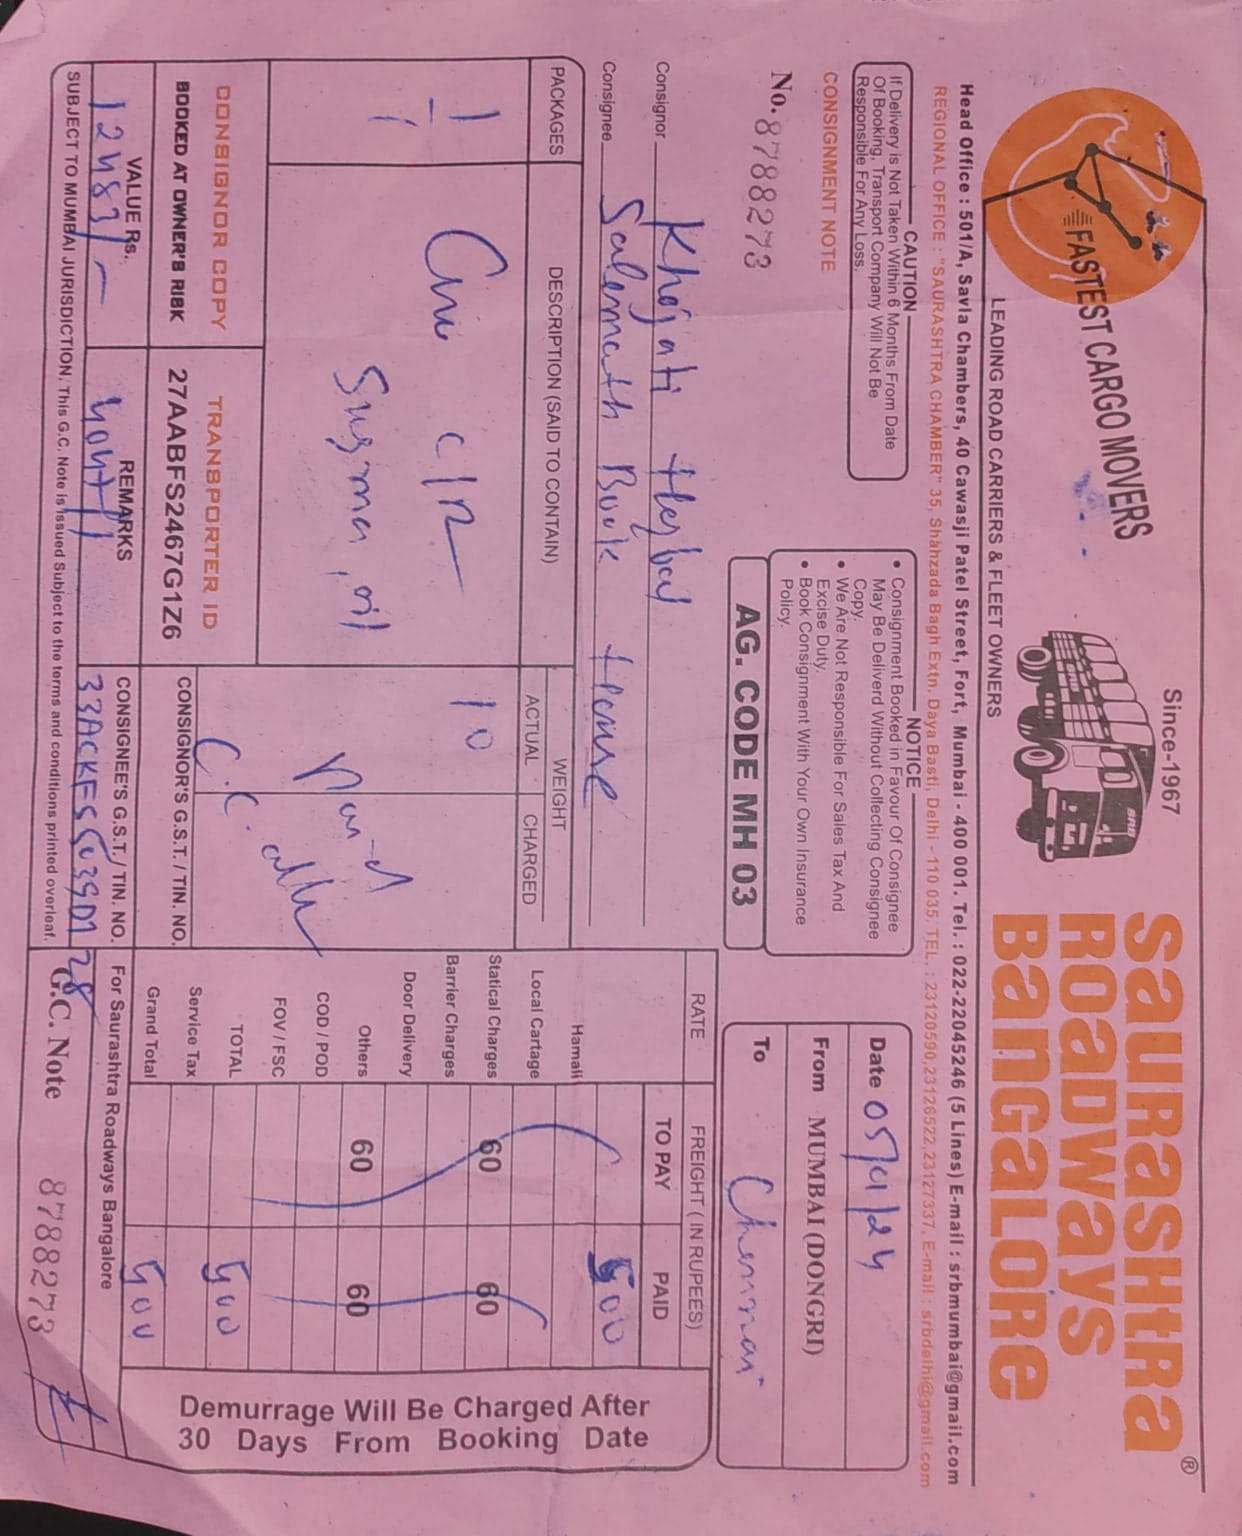 FASTEST CARGO MOVERS
Since-1967
SRB
SaURaSHtRa ®
ROaDWayS
BaNGaLORe
LEADING ROAD CARRIERS & FLEET OWNERS
Head Office : 501/A, Savla Chambers, 40 Cawasji Patel Street, Fort, Mumbai - 400 001. Tel. : 022-22045246 (5 Lines) E-mail : srbmumbai@gmail.com
REGIONAL OFFICE : "SAURASHTRA CHAMBER" 35, Shahzada Bagh Extn. Daya Basti, Delhi - 110 035. TEL. : 23120590,23126522,23127337, E-mail : srbdelhi@gmail.com
CAUTION
If Delivery is Not Taken Within 6 Months From Date
Of Booking, Transport Company Will Not Be
Responsible For Any Loss.
CONSIGNMENT NOTE
No. 8788273
NOTICE
• Consignment Booked in Favour Of Consignee
May Be Deliverd Without Collecting Consignee
Copy.
• We Are Not Responsible For Sales Tax And
Excise Duty.
• Book Consignment With Your Own Insurance
Policy.
AG. CODE MH 03
Date 05/01/24
From MUMBAI (DONGRI)
To Chennai
Consignor Khojati Herbal
Consignee Salemath Book House
PACKAGES
DESCRIPTION (SAID TO CONTAIN)
WEIGHT
ACTUAL
CHARGED
10
oil
C.C.
RATE
FREIGHT ( IN RUPEES)
TO PAY
PAID
500
Hamali
Local Cartage
Statical Charges 60 60
Barrier Charges
Door Delivery
Others 60 60
COD / POD
FOV / FSC
TOTAL 500
Service Tax
Grand Total 500
Demurrage Will Be Charged After
30 Days From Booking Date
CONSIGNOR COPY
BOOKED AT OWNER'S RISK
TRANSPORTER ID
27AABFS2467G1Z6
CONSIGNOR'S G.S.T. / TIN. NO.
VALUE Rs.
12483/-
REMARKS
CONSIGNEE'S G.S.T. / TIN. NO.
For Saurashtra Roadways Bangalore
SUBJECT TO MUMBAI JURISDICTION. This G.C. Note is issued Subject to the terms and conditions printed overleaf.
G.C. Note 8788273